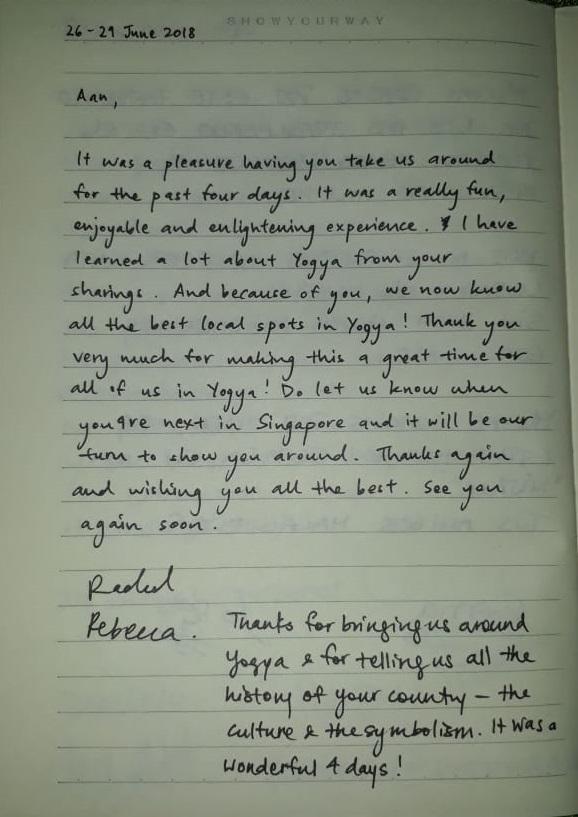 SHOWYOURWAY
26 - 29 June 2018
Aan,
It was a pleasure having you take us around
for the past four days. It was a really fun,
enjoyable and enlightening experience. I have
learned a lot about Yogya from your
sharings. And because of you, we now know
all the best local spots in Yogya! Thank you
very much for making this a great time for
all of us in Yogya! Do let us know when
you're next in Singapore and it will be our
turn to show you around. Thanks again
and wishing you all the best. See you
again soon.
Rachel
Rebecca.
Thanks for bringing us around
Yogya & for telling us all the
history of your country - the
culture & the symbolism. It was a
wonderful 4 days!